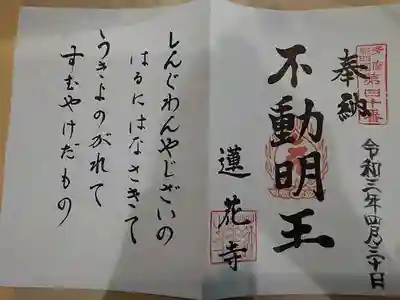 第四十番
奉納
令和三年四月三十日
不動明王
蓮花寺
しんぐわんやじざいの
はるにはなさきて
うきよのがれて
すむやけだもの